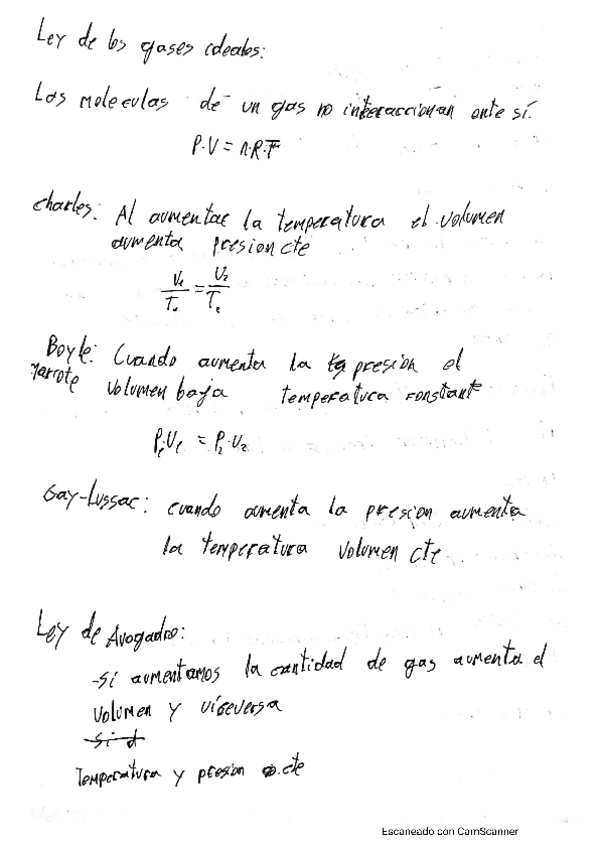 Ley de los gases ideales:
Las moleculas de un gas no interaccionan ente sí.
P.V = n.R.T
Charles: Al aumentar la temperatura el volumen
aumenta presion cte
V₁/T₁ = V₂/T₂
Boyle: Cuando aumenta la presión el
Marrote volumen baja temperatura constant
P₁.V₁ = P₂.V₂
Gay-Lussac: cuando aumenta la presion aumenta
la temperatura volumen cte
Ley de Avogadro:
-Si aumentamos la cantidad de gas aumenta el
volumen y viceversa
Temperatura y presion cte
Escaneado con CamScanner